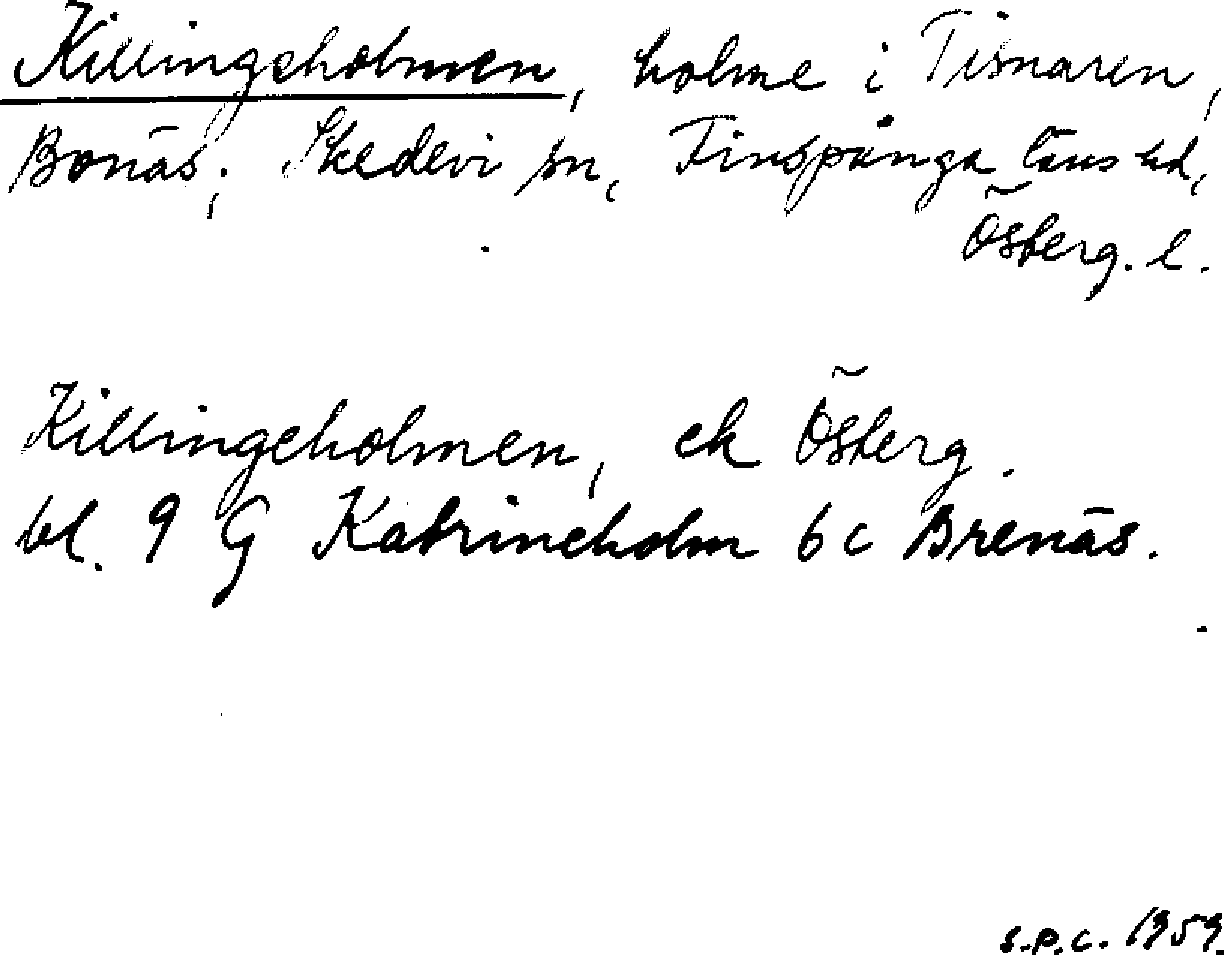 Killingsholmen, holme i Tisnaren,
Bonäs; Skedevi sn, Finspånga läns hd,
Österg. l.
Killingeholmen, ek Österg.
bl. 9 G Katrineholm 6 c Brenäs.
s.p.c. 1959.